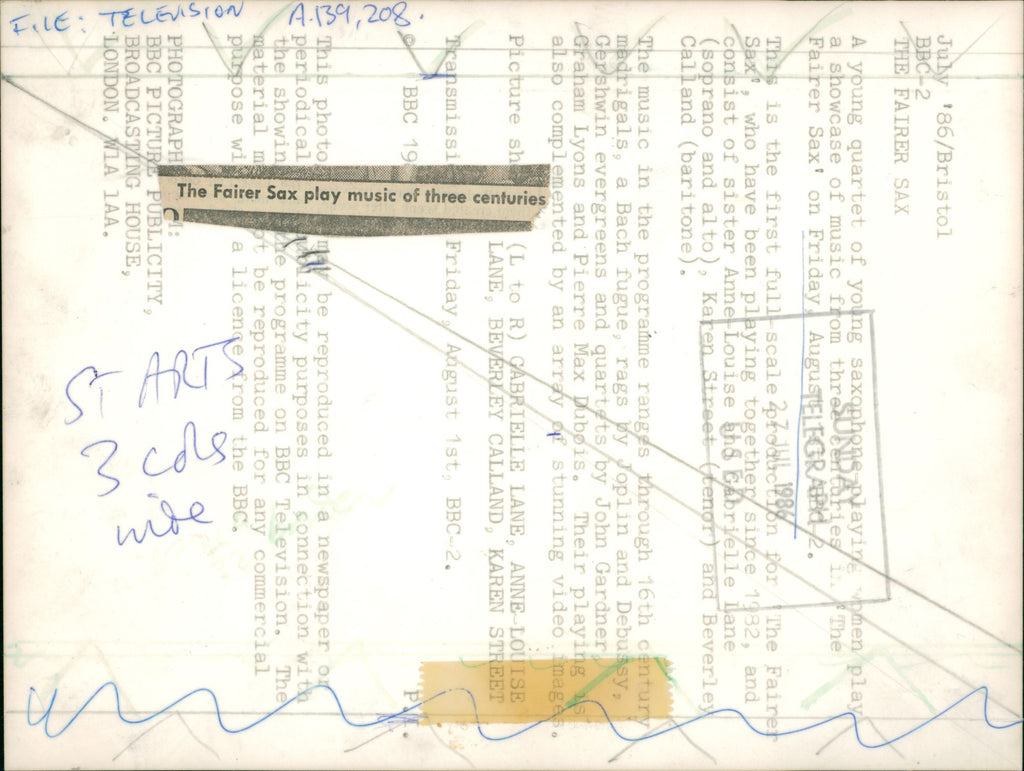 FILE: TELEVISION A.139,208.
July '86/Bristol
BBC-2
THE FAIRER SAX
A young quartet of young saxophone playing women play
a showcase of music from three centuries in 'The
Fairer Sax' on Friday, August 1 2.
This is the first full-scale production for 'The Fairer
Sax', who have been playing together since 1982, and
consist of sister Anne-Louise and Gabrielle Lane
(soprano and alto), Karen Street (tenor) and Beverley
Calland (baritone).
The music in the programme ranges through 16th century
madrigals, a Bach fugue, rags by Joplin and Debussy,
Gershwin evergreens and quartets by John Gardner,
Graham Lyons and Pierre Max Dubois. Their playing is
also complemented by an array of stunning video images.
Picture sh (L to R) GABRIELLE LANE, ANNE-LOUISE
LANE, BEVERLEY CALLAND, KAREN STREET
Transmissi Friday, August 1st, BBC-2.
© BBC 19 P.
This photo m be reproduced in a newspaper or
periodical licity purposes in connection with
the showin e programme on BBC Television. The
material m t be reproduced for any commercial
purpose wi a licence from the BBC.
PHOTOGRAPH M:
BBC PICTURE PUBLICITY,
BROADCASTING HOUSE,
LONDON. W1A 1AA.
The Fairer Sax play music of three centuries
SUNDAY
TELEGRAPH
JUL 1986
ST ARTS
3 cols
wide